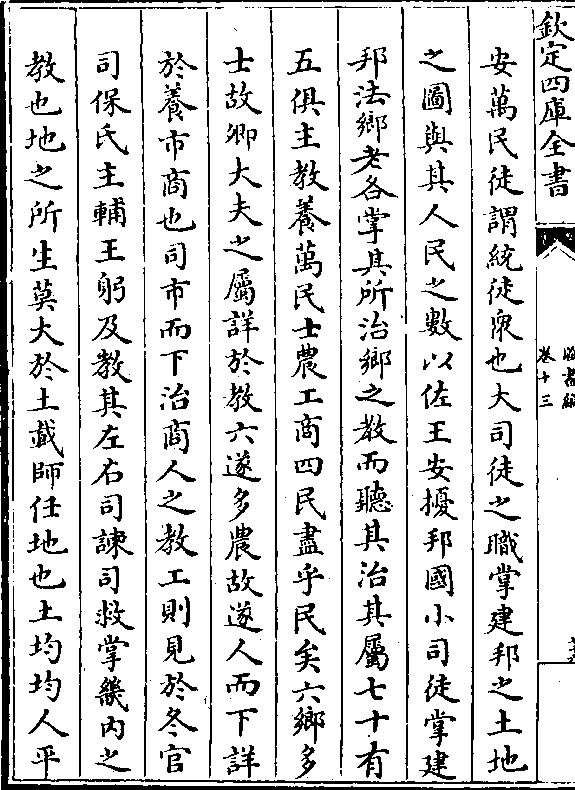 欽定四庫全書
卷十三
安萬民徒謂統徒衆也大司徒之職掌建邦之土地
之圖與其人民之數以佐王安擾邦國小司徒掌建
邦法鄉老各掌其所治鄉之教而聽其治其屬七十有
五俱主教養萬民士農工商四民盡乎民矣六鄉多
士故鄉大夫之屬詳於教六遂多農故遂人而下詳
於養市商也司市而下治商人之教工則見於冬官
司保氏主輔王躬及教其左右司諫司救掌畿内之
教也地之所生莫大於土載師任地也土均均人平